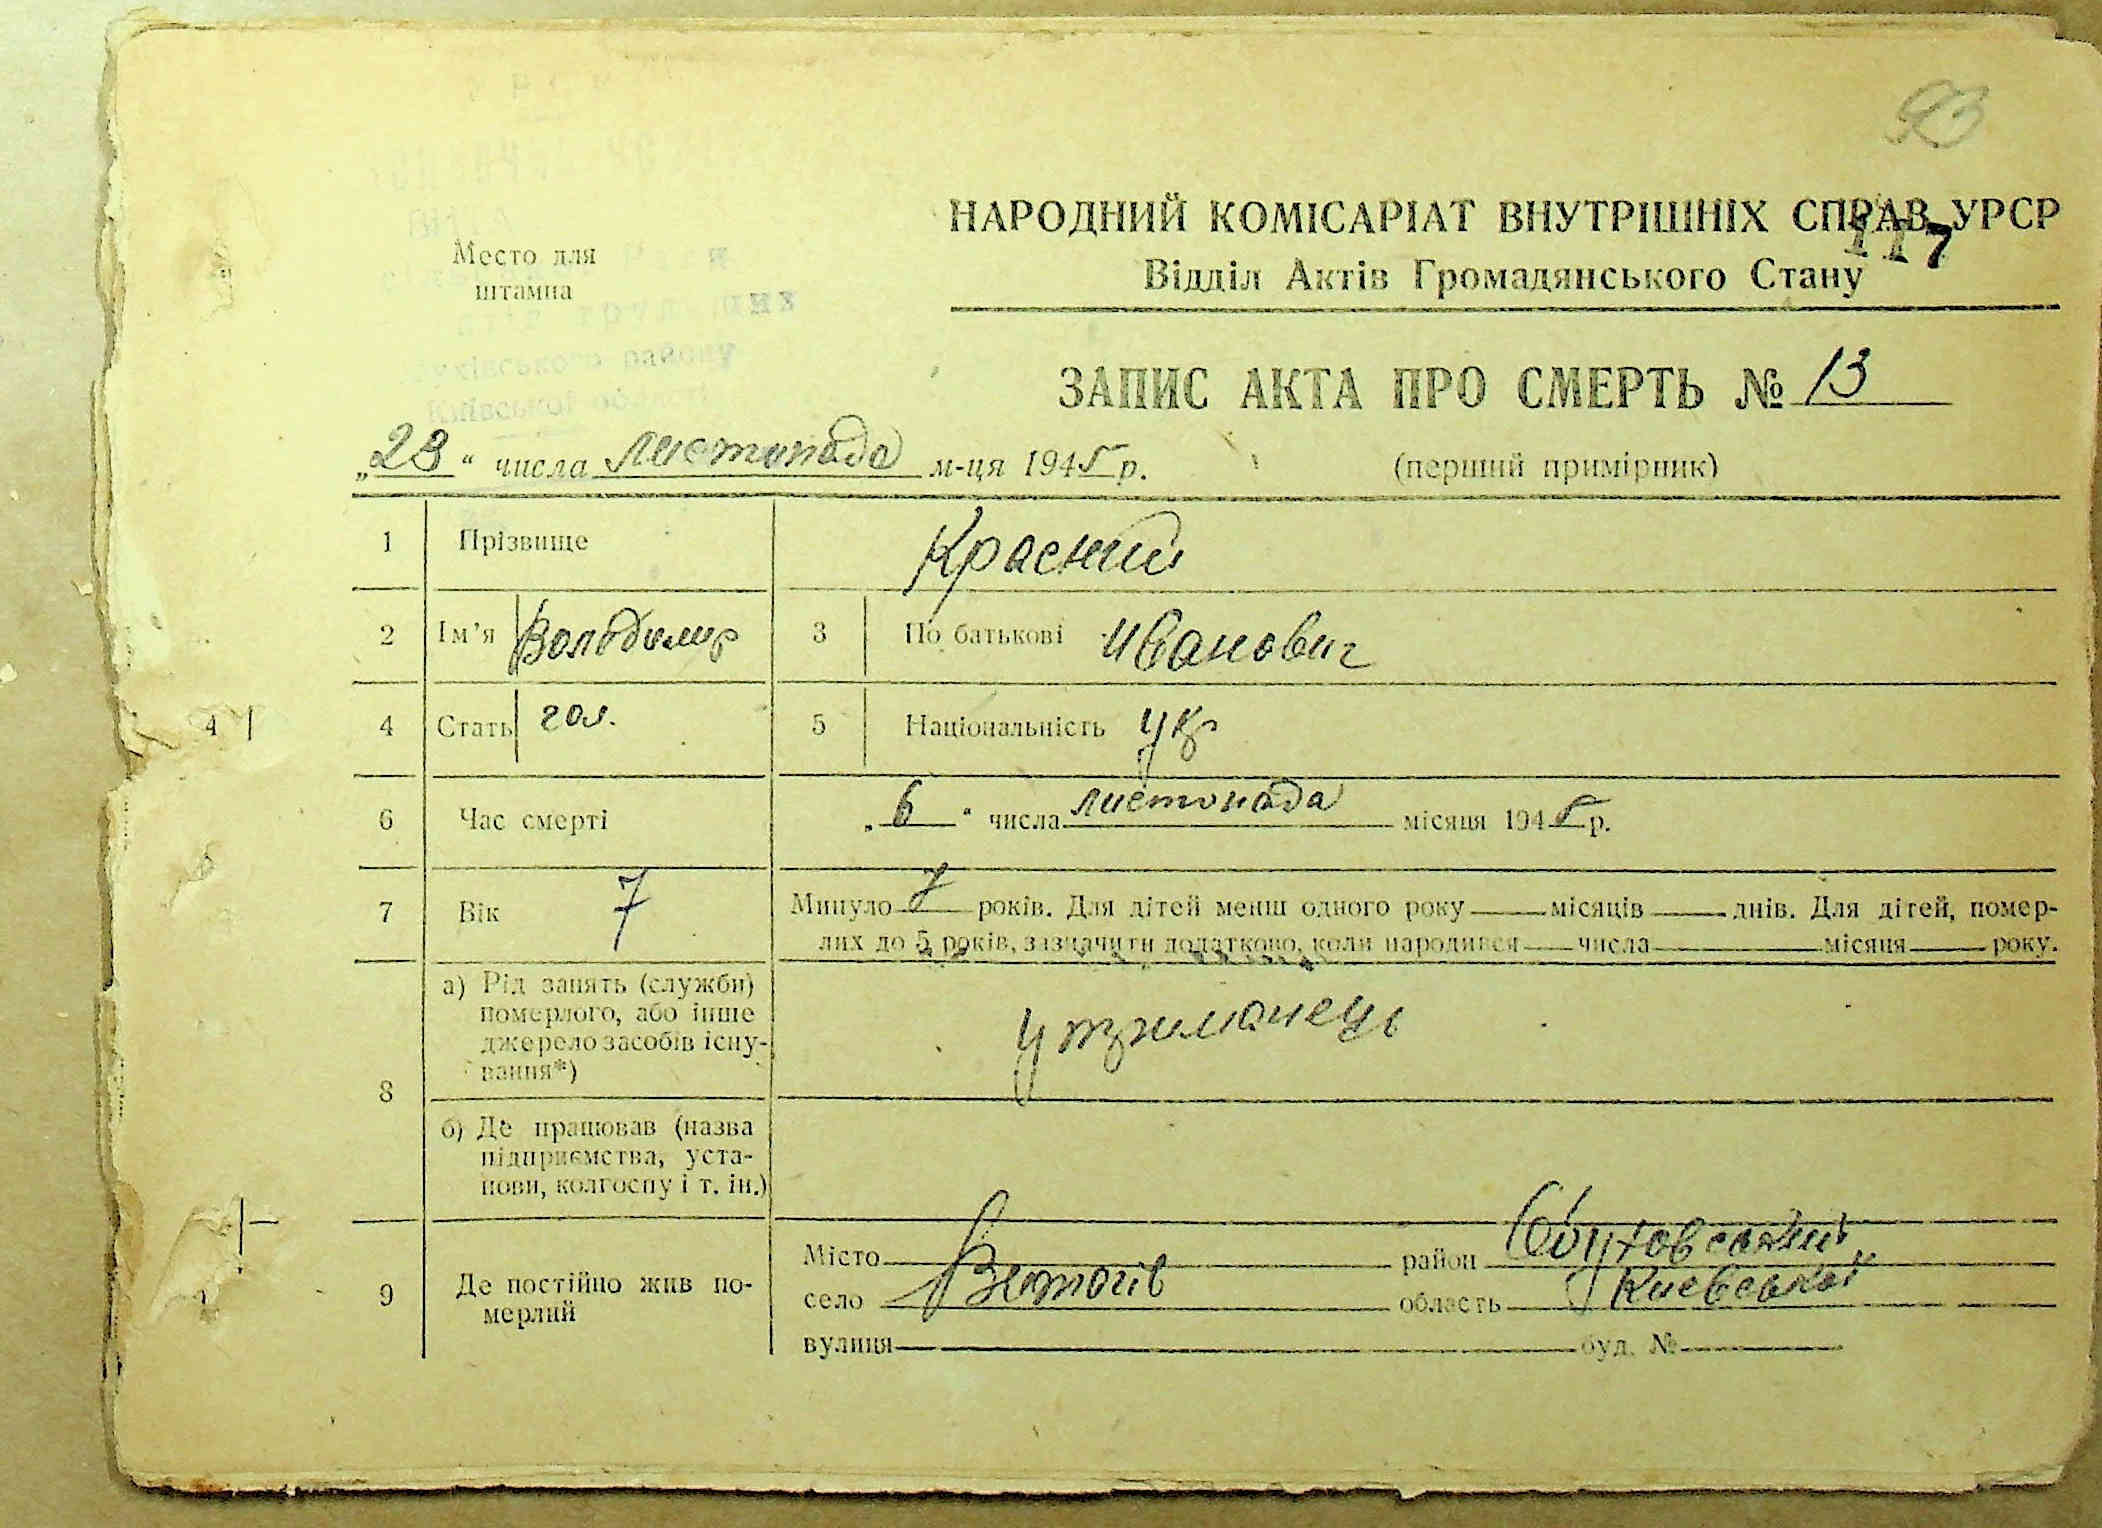 93
НАРОДНИЙ КОМІСАРІАТ ВНУТРІШНІХ СПРАВ УРСР
117
Відділ Актів Громадянського Стану
Место для
штампа
ЗАПИС АКТА ПРО СМЕРТЬ № 13
„23“ числа листопада м-ця 1945 р.
(перший примірник)
1 Прізвище Красний
2 Ім’я Володимир 3 По батькові Иванович
4 Стать чол. 5 Національність укр
6 Час смерті „6“ числа листопада місяця 1945 р.
7 Вік 7 Минуло 7 років. Для дітей менш одного року — місяців — днів. Для дітей, помер-
лих до 5 років, зазначити додатково, коли народився — числа — місяця — року.
8 а) Рід занять (служби)
померлого, або інше
джерело засобів існу-
вання*)
утриманець
б) Де працював (назва
підприємства, уста-
нови, колгоспу і т. ін.)
9 Де постійно жив по-
мерлий
Місто район Обуховський
село Витачів область Киевської
вулиця буд. №